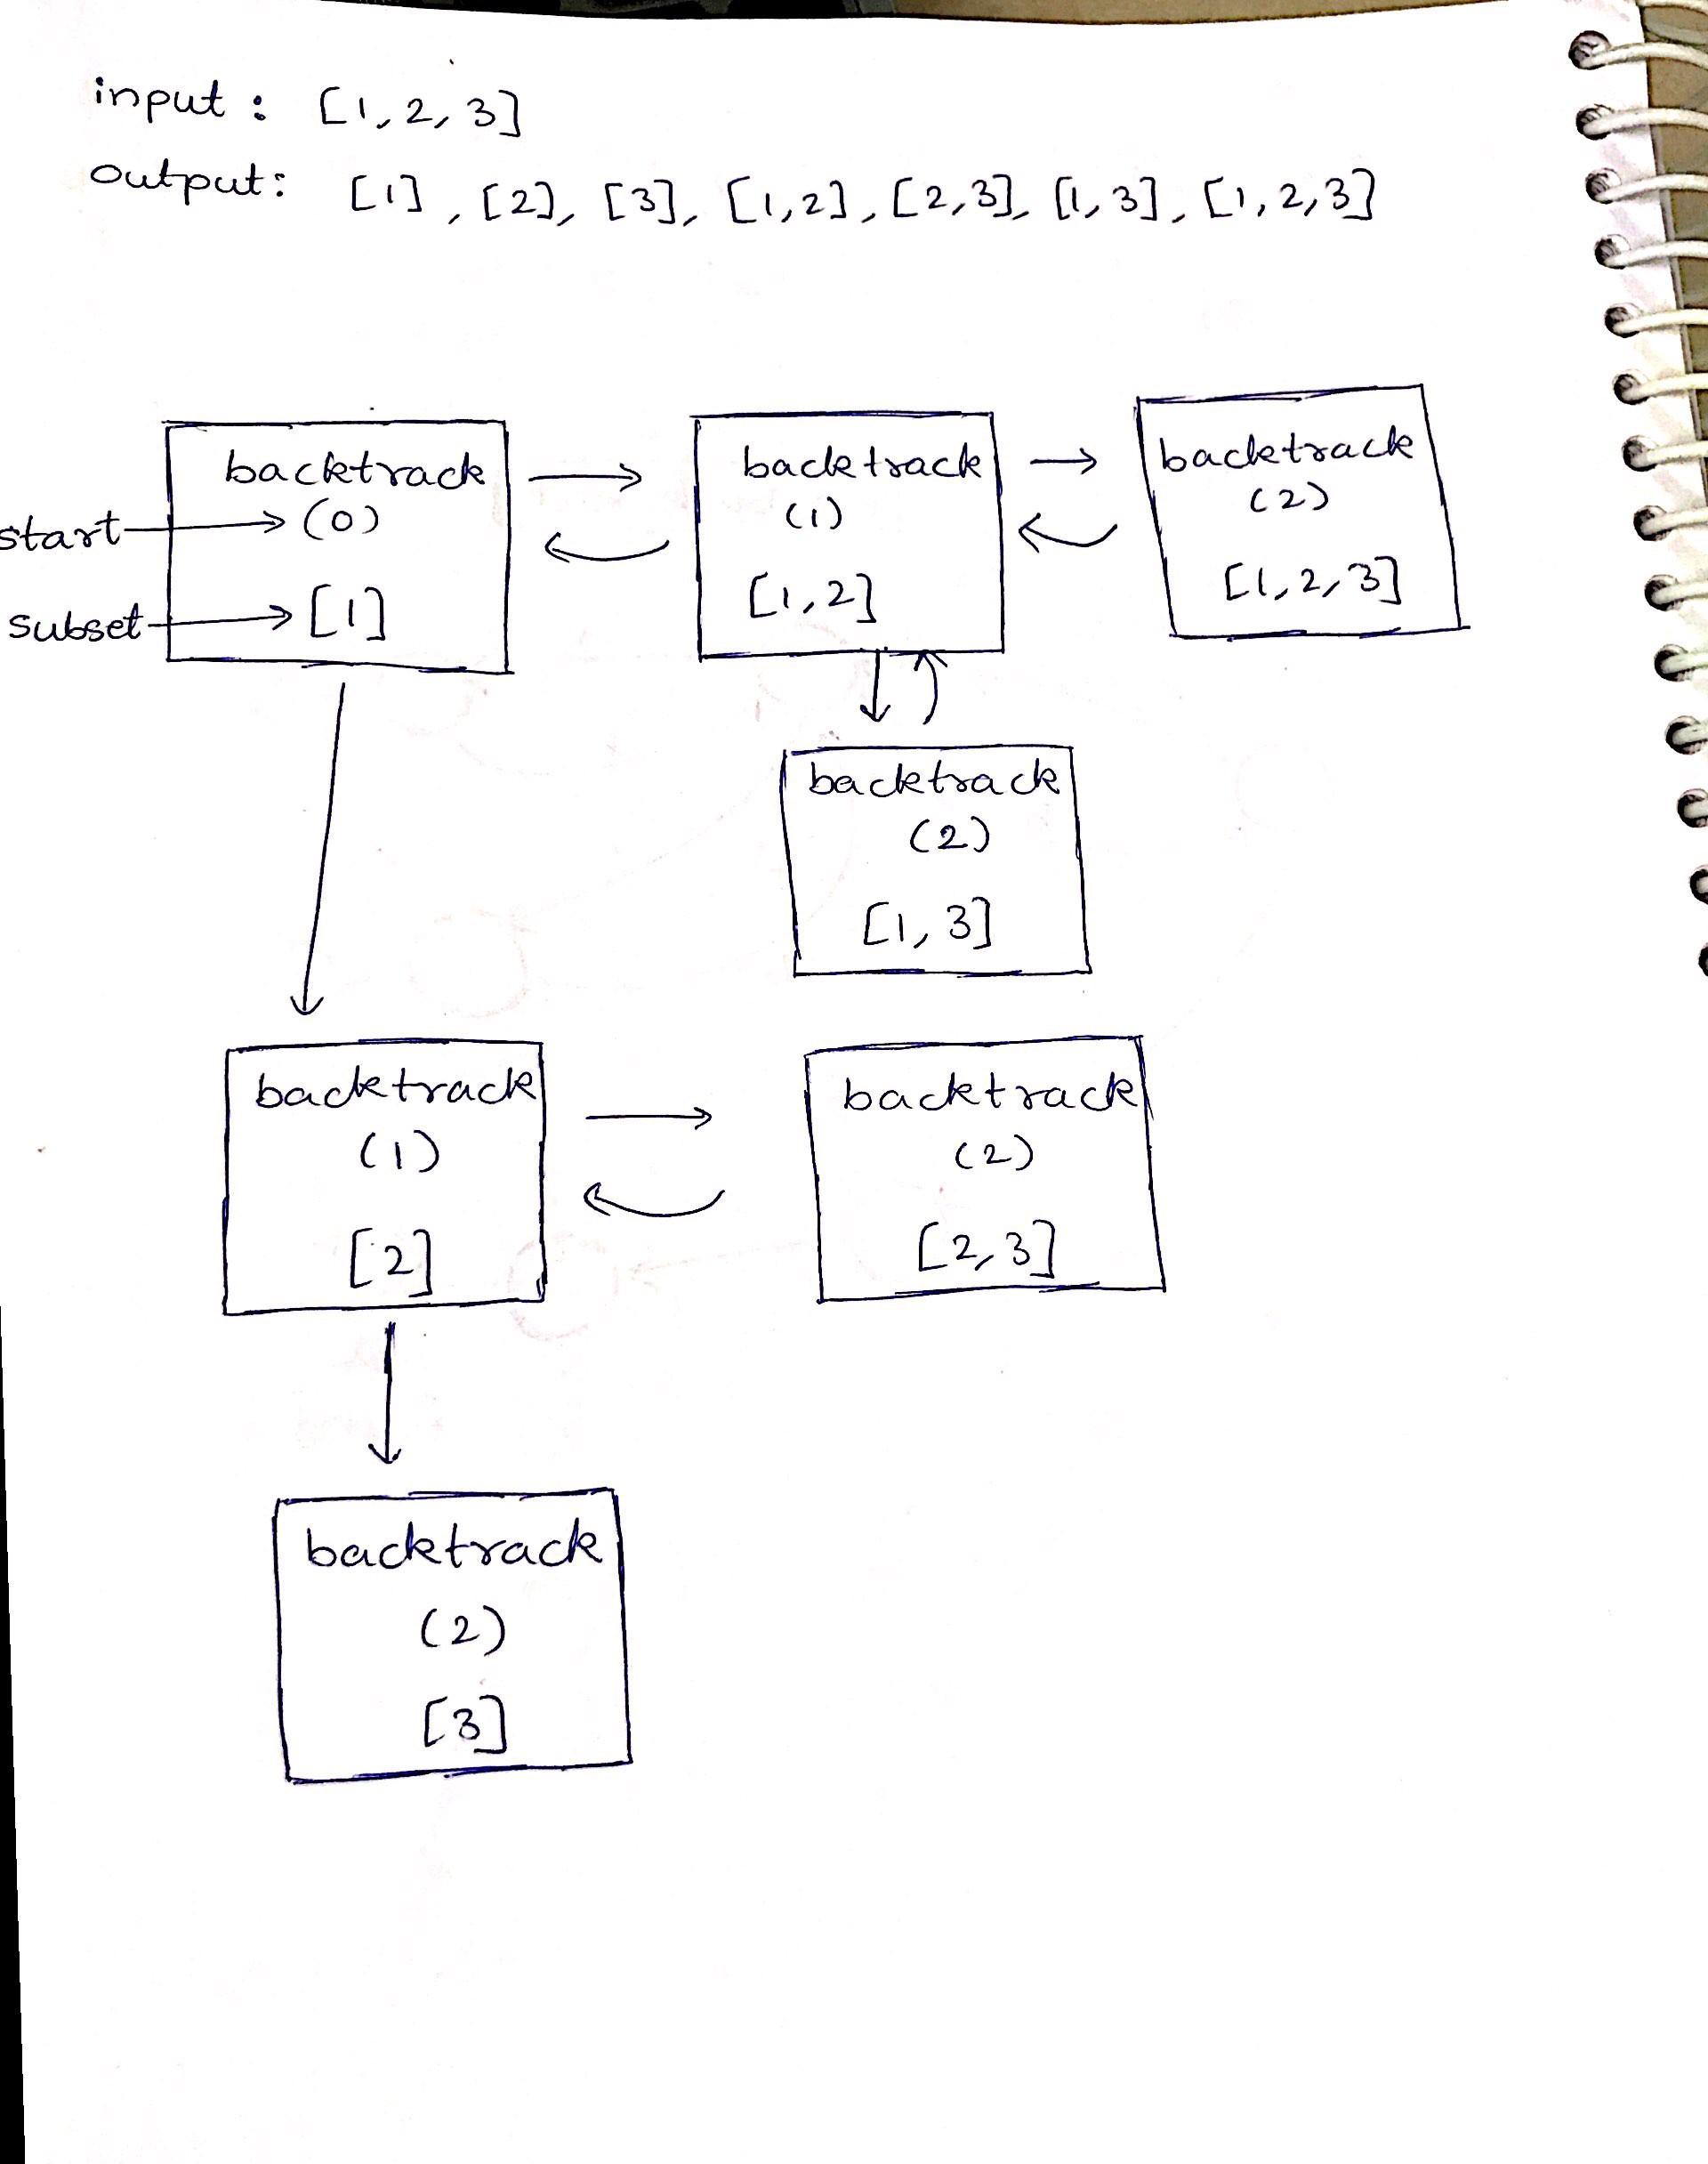 input : [1, 2, 3]
output: [1], [2], [3], [1,2], [2,3], [1,3], [1,2,3]
backtrack
start (0)
subset [1]
backtrack
(1)
[1,2]
backtrack
(2)
[1,2,3]
backtrack
(2)
[1,3]
backtrack
(1)
[2]
backtrack
(2)
[2,3]
backtrack
(2)
[3]